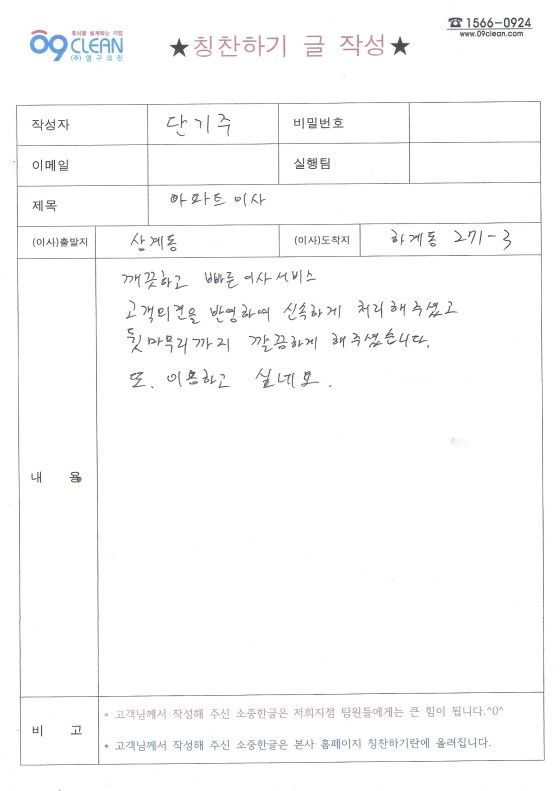 휴식을 설계하는 기업
09 CLEAN
(주)영구크린
★칭찬하기 글 작성★
☎ 1566-0924
www.09clean.com
작성자 단기주 비밀번호
이메일 실행팀
제목 아파트이사
(이사)출발지 상계동 (이사)도착지 하계동 271-3
깨끗하고 빠른이사서비스
고객의견을 반영하여 신속하게 처리해주셨고
뒷마무리까지 깔끔하게 해주셨습니다.
또. 이용하고 싶네요.
내 용
비 고
* 고객님께서 작성해 주신 소중한글은 저희지점 팀원들에게는 큰 힘이 됩니다.^0^
* 고객님께서 작성해 주신 소중한글은 본사 홈페이지 칭찬하기란에 올려집니다.